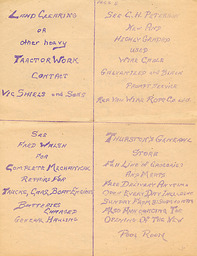 LAND CLEARING
OR
OTHER HEAVY
TRACTOR WORK
CONTACT
VIC SHIELS AND SONS
SEE C. H. PETERSON
NEW AND
HIGHLY GRADED
USED
WIRE CABLE
GUARANTEED IN BLACK
PROMPT SERVICE
WIRE ROPE CO
SEE
FRED WALSH
FOR
COMPLETE MECHANICAL
REPAIRS FOR
TRUCKS, CARS, BOAT ENGINES
BATTERIES
CHARGED
GENERAL HAULING
THURSTON'S GENERAL
STORE
FULL LINE OF GROCERIES
AND MEATS
FREE DELIVERY ANYTIME
OPEN EVERY DAY INCLUDING
SUNDAY FROM
ALSO ANNOUNCING THE
OPENING OF THE NEW
POOL ROOM